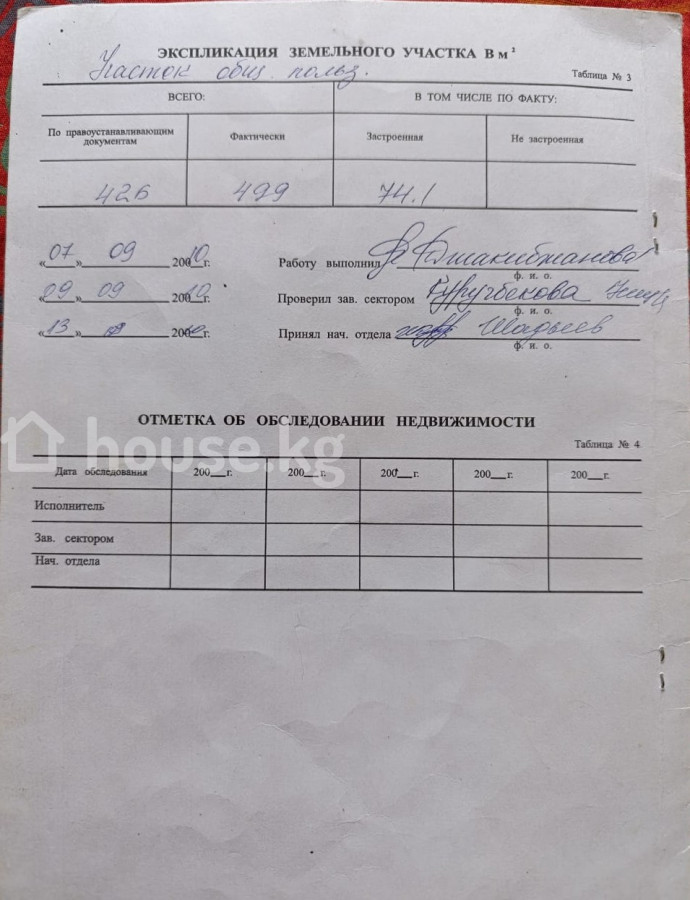 ЭКСПЛИКАЦИЯ ЗЕМЕЛЬНОГО УЧАСТКА В м²
Участок общ. польз.
Таблица № 3
ВСЕГО: В ТОМ ЧИСЛЕ ПО ФАКТУ:
По правоустанавливающим документам Фактически Застроенная Не застроенная
426 499 74.1
«07» 09 2010г. Работу выполнил
ф. и. о.
«09» 09 2010г. Проверил зав. сектором
ф. и. о.
«13» 2010г. Принял нач. отдела Шадыев
ф. и. о.
ОТМЕТКА ОБ ОБСЛЕДОВАНИИ НЕДВИЖИМОСТИ
house.kg
Таблица № 4
Дата обследования 200__г. 200__г. 200__г. 200__г. 200__г.
Исполнитель
Зав. сектором
Нач. отдела